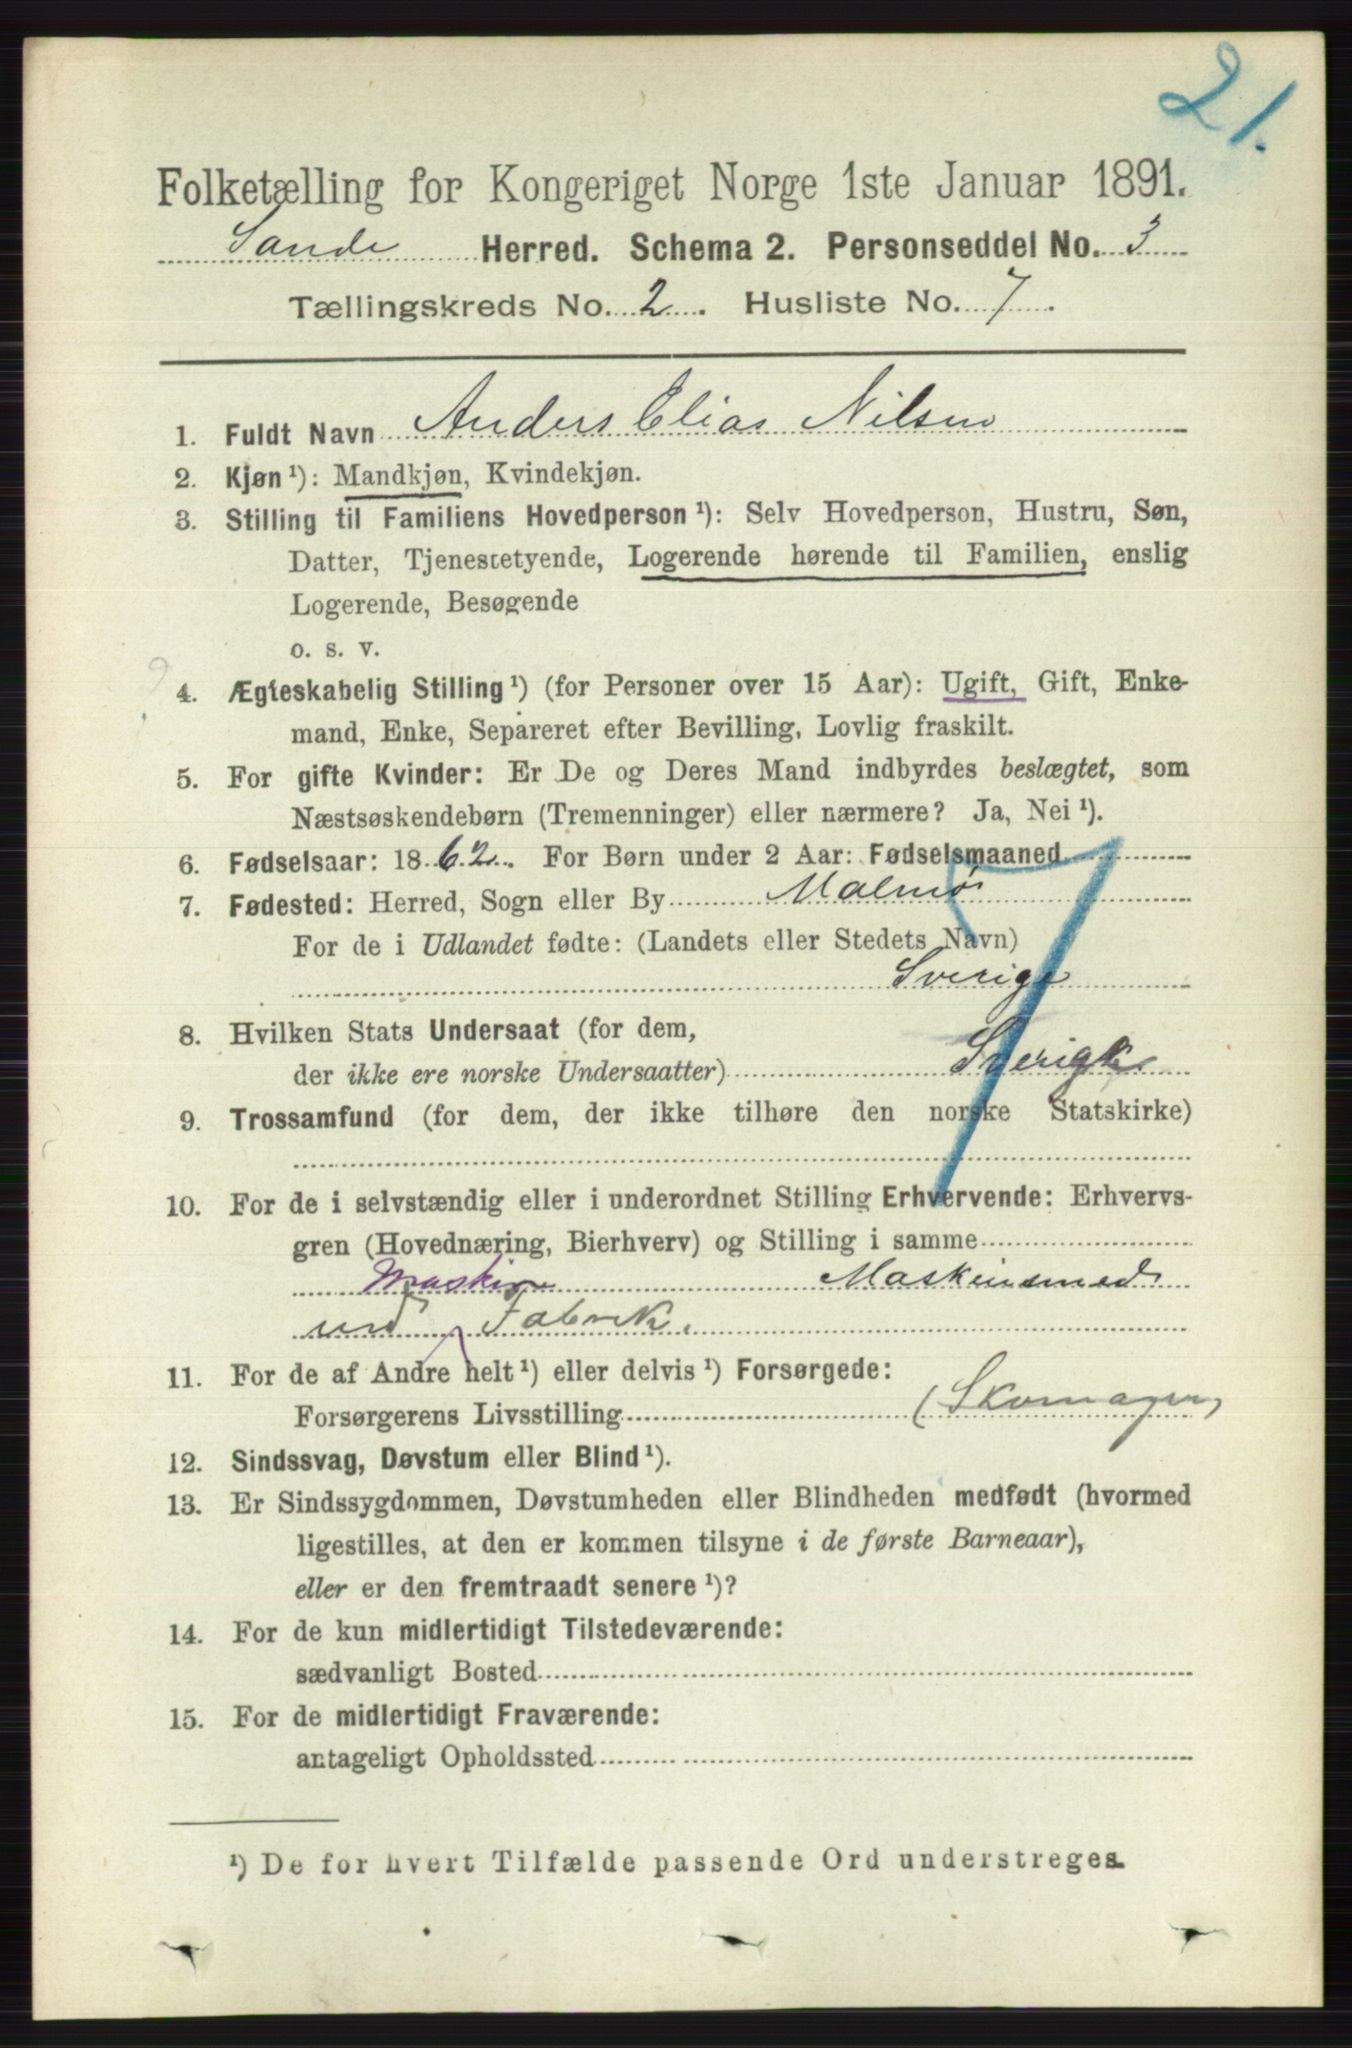 21.
Folketælling for Kongeriget Norge 1ste Januar 1891.
Sande Herred. Schema 2. Personseddel No. 3
Tællingskreds No. 2. Husliste No. 7.
1. Fuldt Navn Anders Elias Nilsen
2. Kjøn ¹): Mandkjøn, Kvindekjøn.
3. Stilling til Familiens Hovedperson ¹): Selv Hovedperson, Hustru, Søn,
Datter, Tjenestetyende, Logerende hørende til Familien, enslig
Logerende, Besøgende
o. s. v.
4. Ægteskabelig Stilling ¹) (for Personer over 15 Aar): Ugift, Gift, Enke-
mand, Enke, Separeret efter Bevilling, Lovlig fraskilt.
5. For gifte Kvinder: Er De og Deres Mand indbyrdes beslægtet, som
Næstsøskendebørn (Tremenninger) eller nærmere? Ja, Nei ¹).
6. Fødselsaar: 1862. For Børn under 2 Aar: Fødselsmaaned
7. Fødested: Herred, Sogn eller By Malmø
For de i Udlandet fødte: (Landets eller Stedets Navn)
Sverige
8. Hvilken Stats Undersaat (for dem,
der ikke ere norske Undersaatter) Sverigks
9. Trossamfund (for dem, der ikke tilhøre den norske Statskirke)
10. For de i selvstændig eller i underordnet Stilling Erhvervende: Erhvervs-
gren (Hovednæring, Bierhverv) og Stilling i samme
Maskin Maskinsmed
ved Fabrik.
11. For de af Andre helt ¹) eller delvis ¹) Forsørgede:
Forsørgerens Livsstilling (Skomager)
12. Sindssvag, Døvstum eller Blind ¹).
13. Er Sindssygdommen, Døvstumheden eller Blindheden medfødt (hvormed
ligestilles, at den er kommen tilsyne i de første Barneaar),
eller er den fremtraadt senere ¹)?
14. For de kun midlertidigt Tilstedeværende:
sædvanligt Bosted
15. For de midlertidigt Fraværende:
antageligt Opholdssted
¹) De for hvert Tilfælde passende Ord understreges.